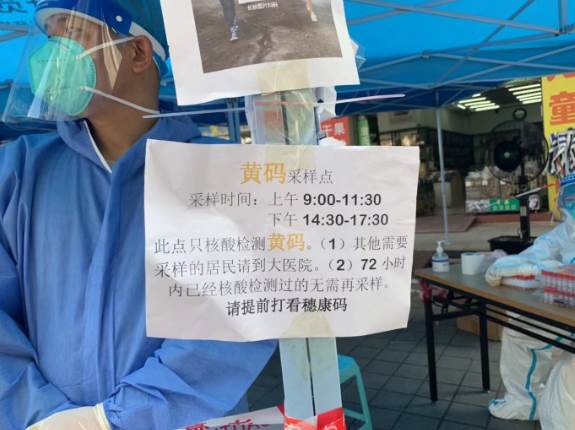 黄码采样点
采样时间：上午 9:00-11:30
下午 14:30-17:30
此点只核酸检测黄码。（1）其他需要
采样的居民请到大医院。（2）72 小时
内已经核酸检测过的无需再采样。
请提前打看穗康码